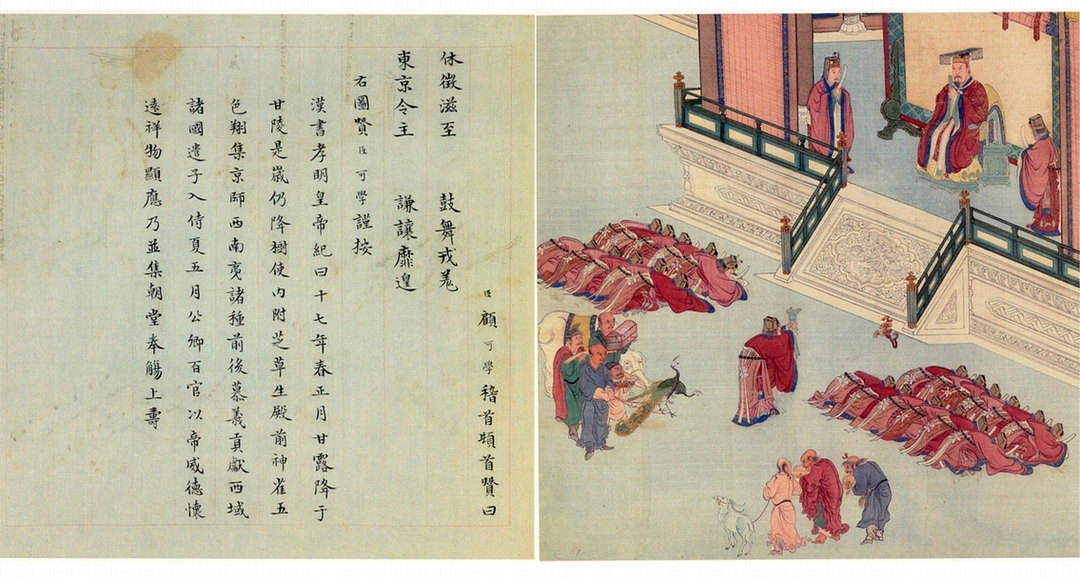 臣顧可學稽首頓首贊曰
休徵滋至 鼓舞戎羌
東京令主 謙讓靡遑
右圖贊臣可學謹按
漢書孝明皇帝紀曰十七年春正月甘露降于
甘陵是嵗仍降樹使內附芝草生殿前神雀五
色翔集京師西南夷諸種前後慕義貢獻西域
諸國遣子入侍夏五月公卿百官以帝威德懷
遠祥物顯應乃並集朝堂奉觴上壽